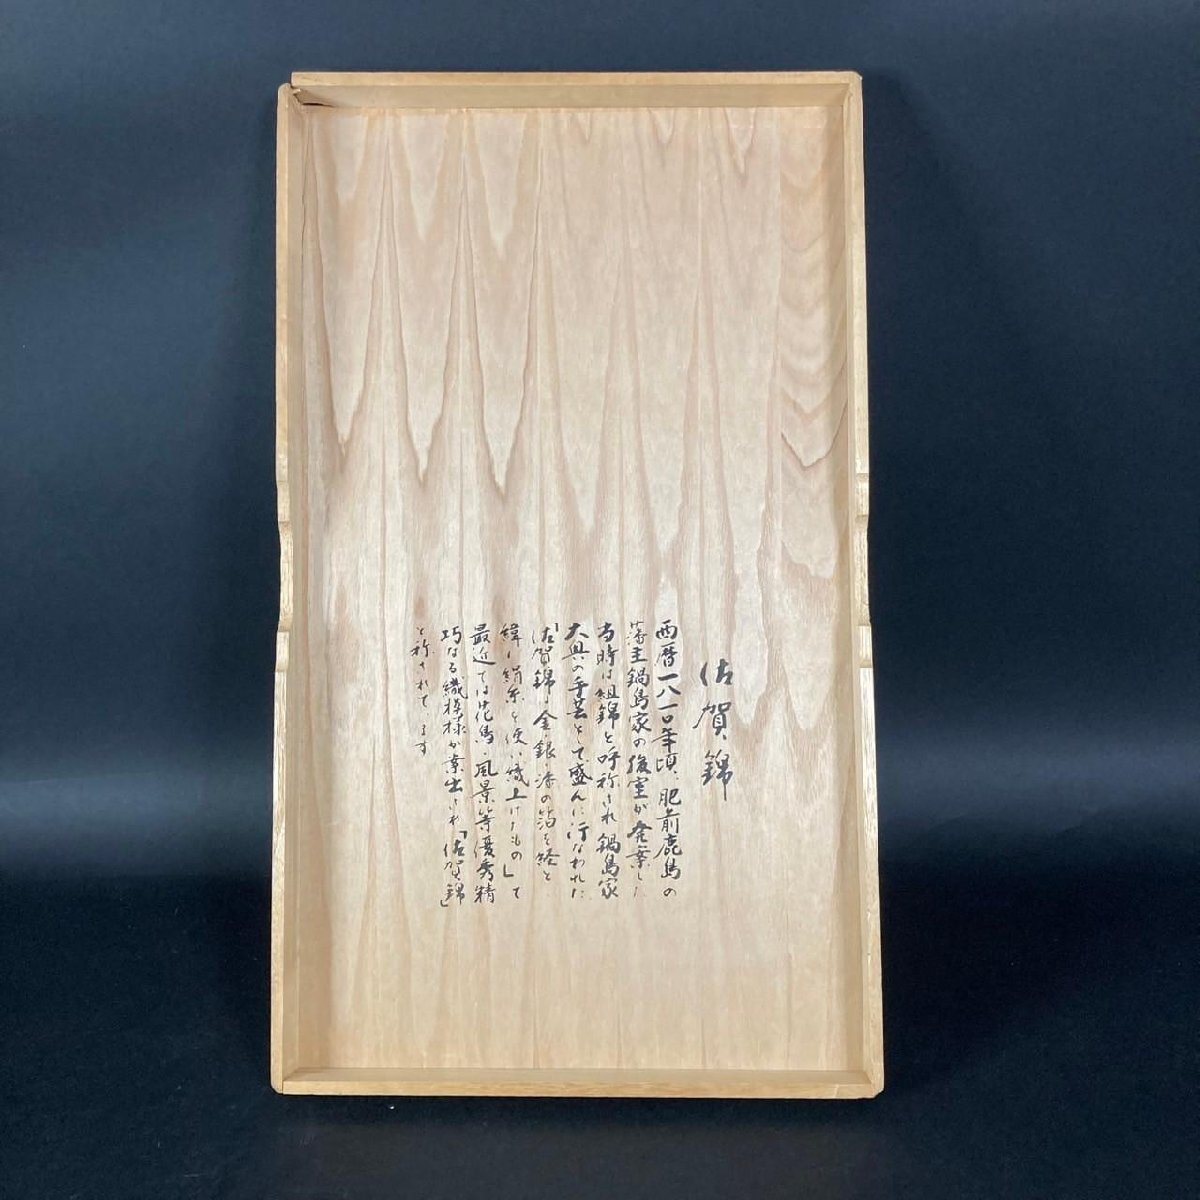 佐賀錦
西暦一八一〇年頃、肥前鹿島の
藩主鍋島家の後室が発案した
当時は組錦と呼称され鍋島家
大奥の手芸として盛んに行なわれた
「佐賀錦は金・銀・漆の箔を経と
緯に絹糸を使い織上げたもの」で
最近では花鳥・風景等優秀精
巧なる織模様が案出され「佐賀錦」
と称されています